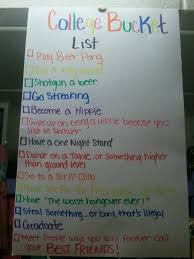 College Bucket
List
Play Beer Pong
Shotgun a beer
Go Streaking
Become a Hippie
Give up on being a Hippie because you
like to Shower
Have a one Night Stand
Dance on a Table, or something higher
than ground level
Go to a Strip Club
Have "the worst hangover ever!"
Steal Something...or dont, that's illegal!
Graduate
Meet People who you will forever call
your BEST FRIENDS!